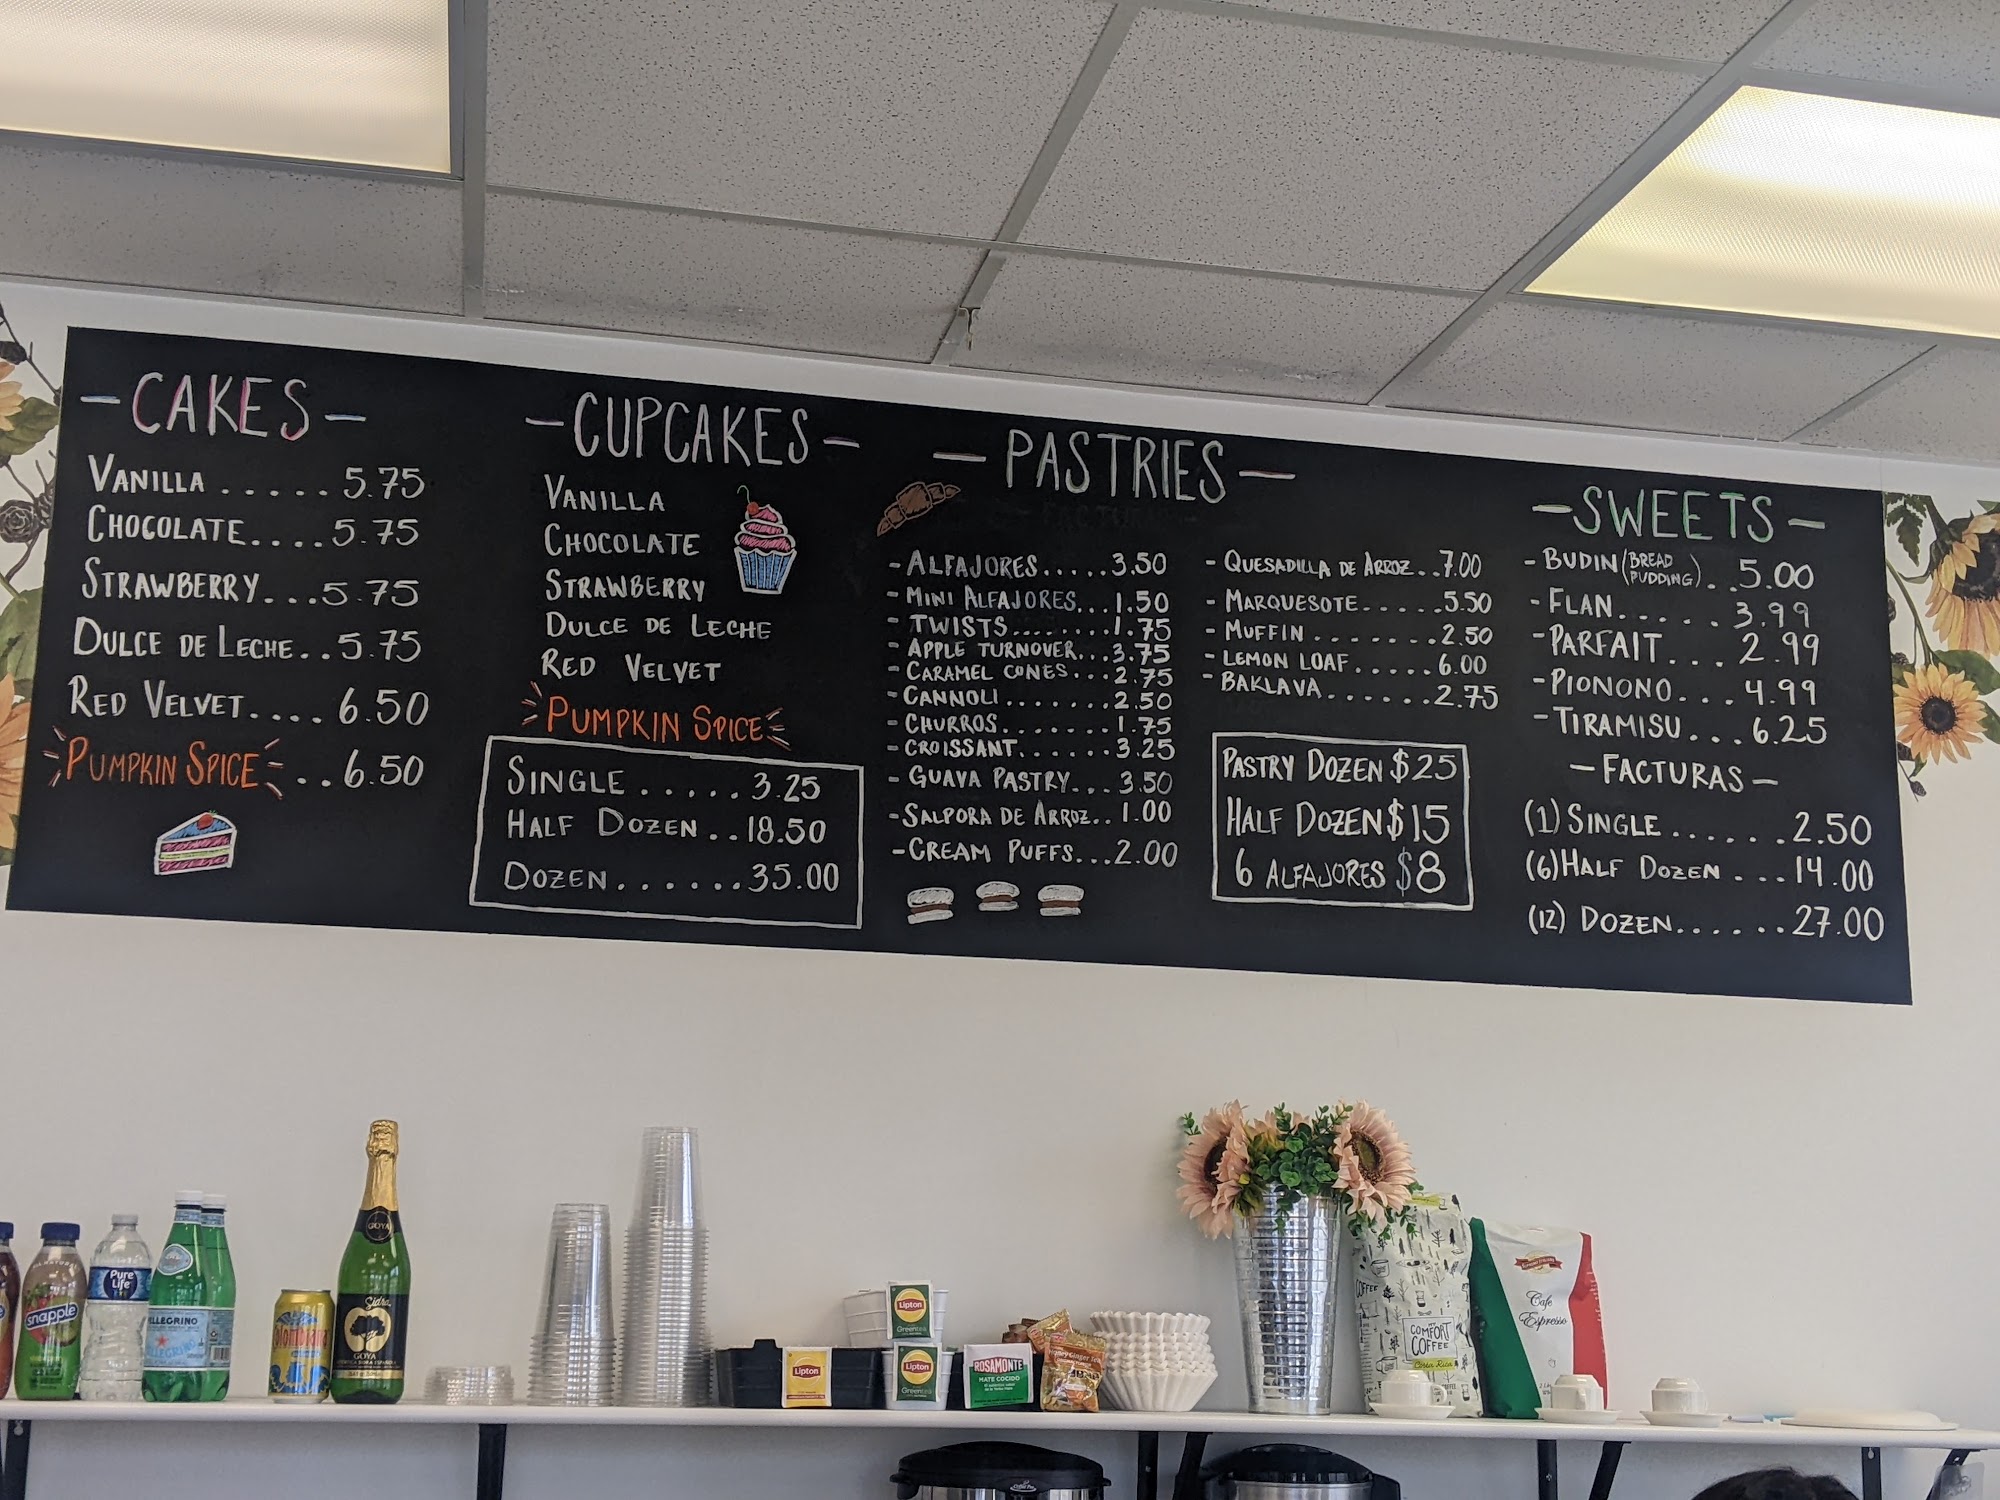 - CAKES -
VANILLA ..... 5.75
CHOCOLATE.... 5.75
STRAWBERRY...5.75
DULCE DE LECHE..5.75
RED VELVET.... 6.50
PUMPKIN SPICE ..6.50
- CUPCAKES -
VANILLA
CHOCOLATE
STRAWBERRY
DULCE DE LECHE
RED VELVET
PUMPKIN SPICE
SINGLE ..... 3.25
HALF DOZEN ..18.50
DOZEN......35.00
- PASTRIES -
- ALFAJORES.....3.50
- MINI ALFAJORES...1.50
- TWISTS........1.75
- APPLE TURNOVER...3.75
- CARAMEL CONES...2.75
- CANNOLI.......2.50
- CHURROS.......1.75
- CROISSANT......3.25
- GUAVA PASTRY...3.50
- SALPORA DE ARROZ..1.00
- CREAM PUFFS...2.00
- QUESADILLA DE ARROZ..7.00
- MARQUESOTE.....5.50
- MUFFIN.......2.50
- LEMON LOAF.....6.00
- BAKLAVA......2.75
PASTRY DOZEN $25
HALF DOZEN $15
6 ALFAJORES $8
- SWEETS -
- BUDIN (BREAD PUDDING)..5.00
- FLAN.....3.99
- PARFAIT...2.99
- PIONONO...4.99
- TIRAMISU...6.25
- FACTURAS -
(1) SINGLE......2.50
(6) HALF DOZEN ...14.00
(12) DOZEN......27.00
snapple
Pure Life
PELLEGRINO
Colombiana
GOYA
Sidra
GOYA
Lipton
Lipton
Green tea
Lipton
Green tea
ROSAMONTE
MATE COCIDO
Honey Ginger Tea
COFFEE
COMFORT
COFFEE
Costa Rica
Cafe
Espresso